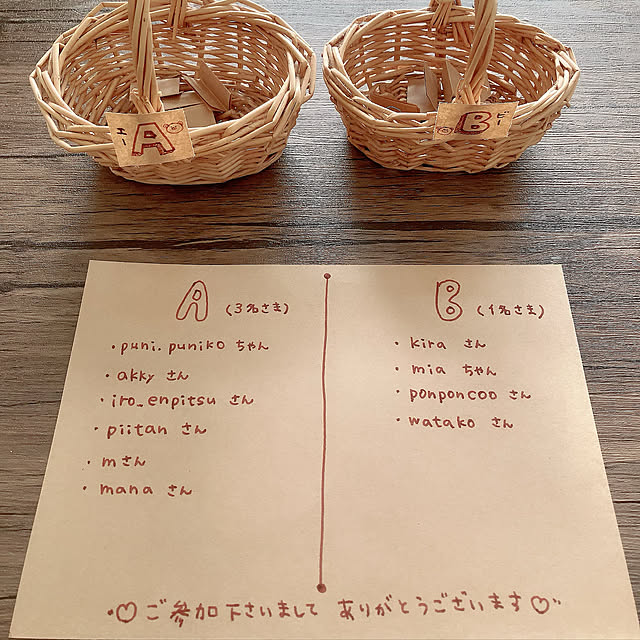 エー
A
ビー
B
A (3名さま)
・puni.puniko ちゃん
・akky さん
・iro_enpitsu さん
・piitan さん
・mさん
・mana さん
B (1名さま)
・kira さん
・mia ちゃん
・ponponcoo さん
・watako さん
♡ご参加下さいまして ありがとうございます♡